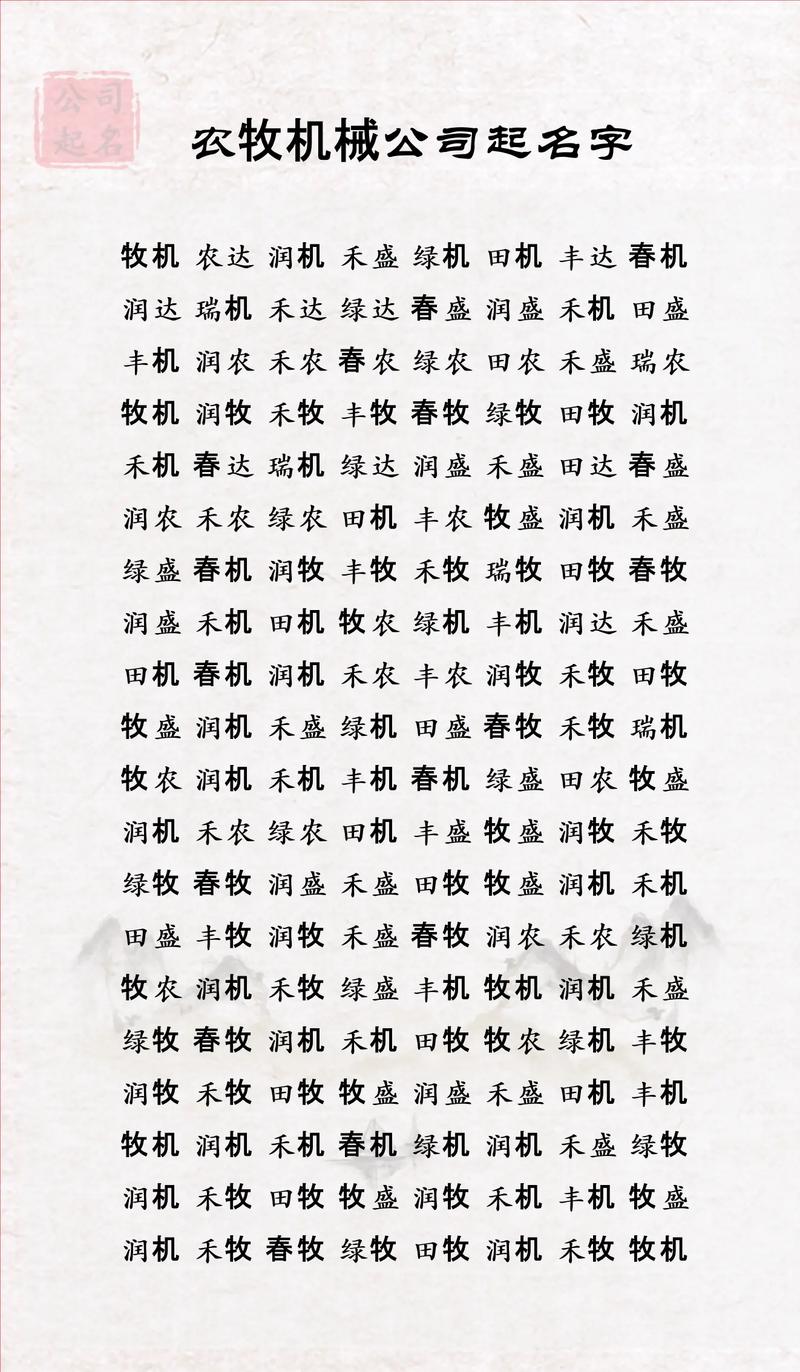 公司
起名
农牧机械公司起名字
牧机 农达 润机 禾盛 绿机 田机 丰达 春机
润达 瑞机 禾达 绿达 春盛 润盛 禾机 田盛
丰机 润农 禾农 春农 绿农 田农 禾盛 瑞农
牧机 润牧 禾牧 丰牧 春牧 绿牧 田牧 润机
禾机 春达 瑞机 绿达 润盛 禾盛 田达 春盛
润农 禾农 绿农 田机 丰农 牧盛 润机 禾盛
绿盛 春机 润牧 丰牧 禾牧 瑞牧 田牧 春牧
润盛 禾机 田机 牧农 绿机 丰机 润达 禾盛
田机 春机 润机 禾农 丰农 润牧 禾牧 田牧
牧盛 润机 禾盛 绿机 田盛 春牧 禾牧 瑞机
牧农 润机 禾机 丰机 春机 绿盛 田农 牧盛
润机 禾农 绿农 田机 丰盛 牧盛 润牧 禾牧
绿牧 春牧 润盛 禾盛 田牧 牧盛 润机 禾机
田盛 丰牧 润牧 禾盛 春牧 润农 禾农 绿机
牧农 润机 禾牧 绿盛 丰机 牧机 润机 禾盛
绿牧 春牧 润机 禾机 田牧 牧农 绿机 丰牧
润牧 禾牧 田牧 牧盛 润盛 禾盛 田机 丰机
牧机 润机 禾机 春机 绿机 润机 禾盛 绿牧
润机 禾牧 田牧 牧盛 润牧 禾机 丰机 牧盛
润机 禾牧 春牧 绿牧 田牧 润机 禾牧 牧机